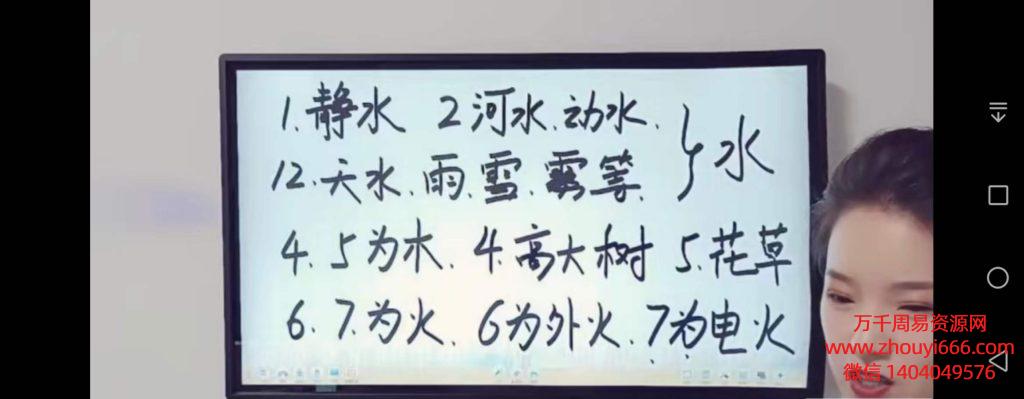 1.静水 2河水.动水.
12.天水.雨.雪.雾等.
}水
4.5为木.4.高大树 5.花草
6.7.为火.6为外火.7为电火
万千周易资源网
www.zhouyi666.com
微信 1404049576